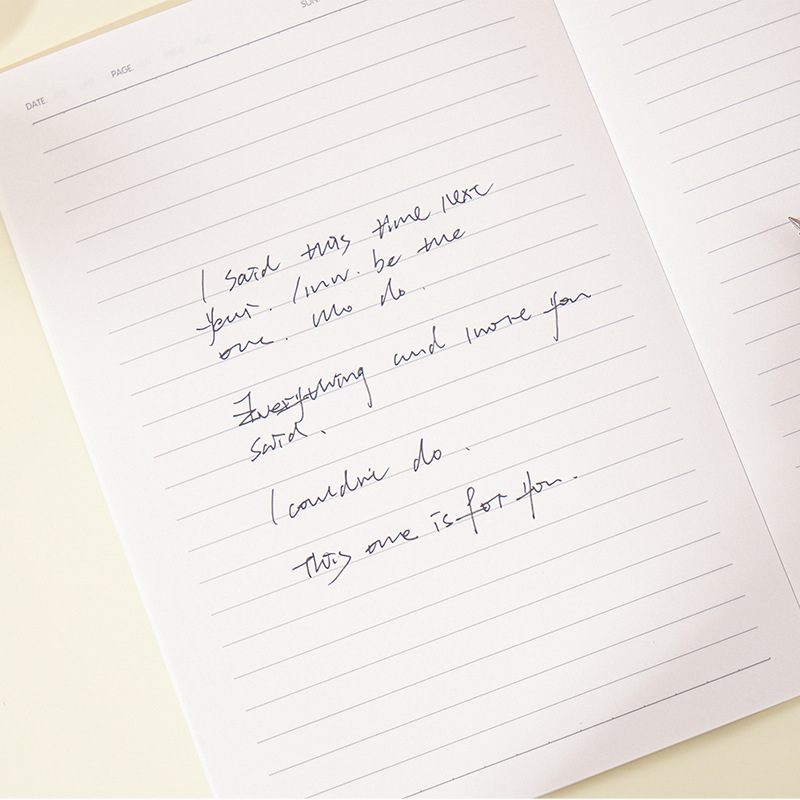 DATE. PAGE. SUN
I said this time next
year. I'nn. be the
one. who do.
Everything and more you
said.
I couldn't do.
This one is for you.